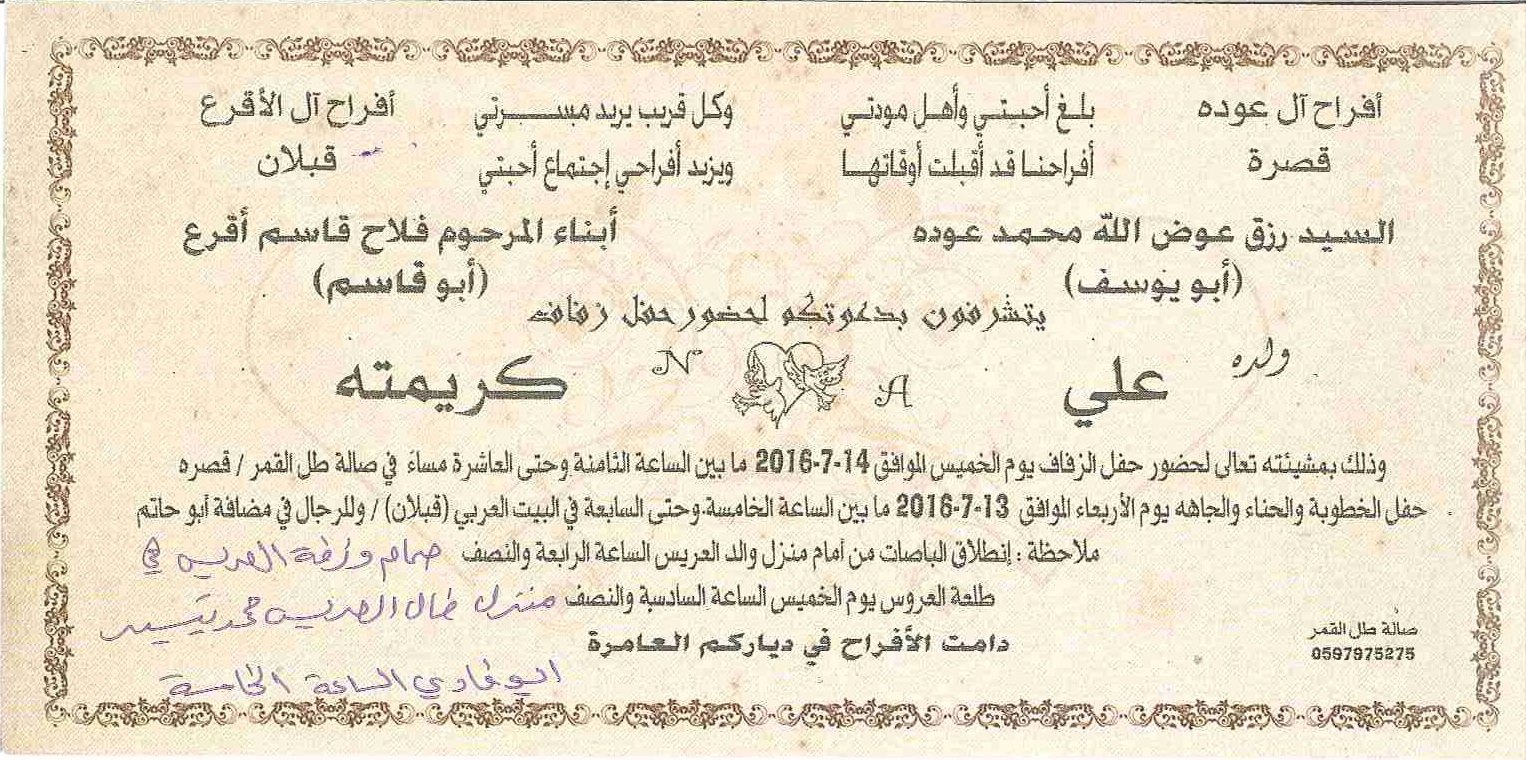 أفراح آل عوده بلغ أحبتي وأهل مودتي وكل قريب يريد مسرتي أفراح آل الأقرع
قصرة أفراحنا قد أقبلت أوقاتها ويزيد أفراحي إجتماع أحبتي قبلان
السيد رزق عوض الله محمد عوده أبناء المرحوم فلاح قاسم أقرع
(أبو يوسف) (أبو قاسم)
يتشرفون بدعوتكم لحضور حفل زفاف
ولده علي A N كريمته
وذلك بمشيئته تعالى لحضور حفل الزفاف يوم الخميس الموافق 14-7-2016 ما بين الساعة الثامنة وحتى العاشرة مساءً في صالة طل القمر / قصره
حفل الخطوبة والحناء والجاهه يوم الأربعاء الموافق 13-7-2016 ما بين الساعة الخامسة وحتى السابعة في البيت العربي (قبلان) / وللرجال في مضافة أبو حاتم
ملاحظة : إنطلاق الباصات من أمام منزل والد العريس الساعة الرابعة والنصف حمام وزفة العريس في
طلعة العروس يوم الخميس الساعة السادسة والنصف منزل خال العريس محمد تيسير
دامت الأفراح في دياركم العامرة
ابو فادي الساعة الخامسة
صالة طل القمر
0597975275